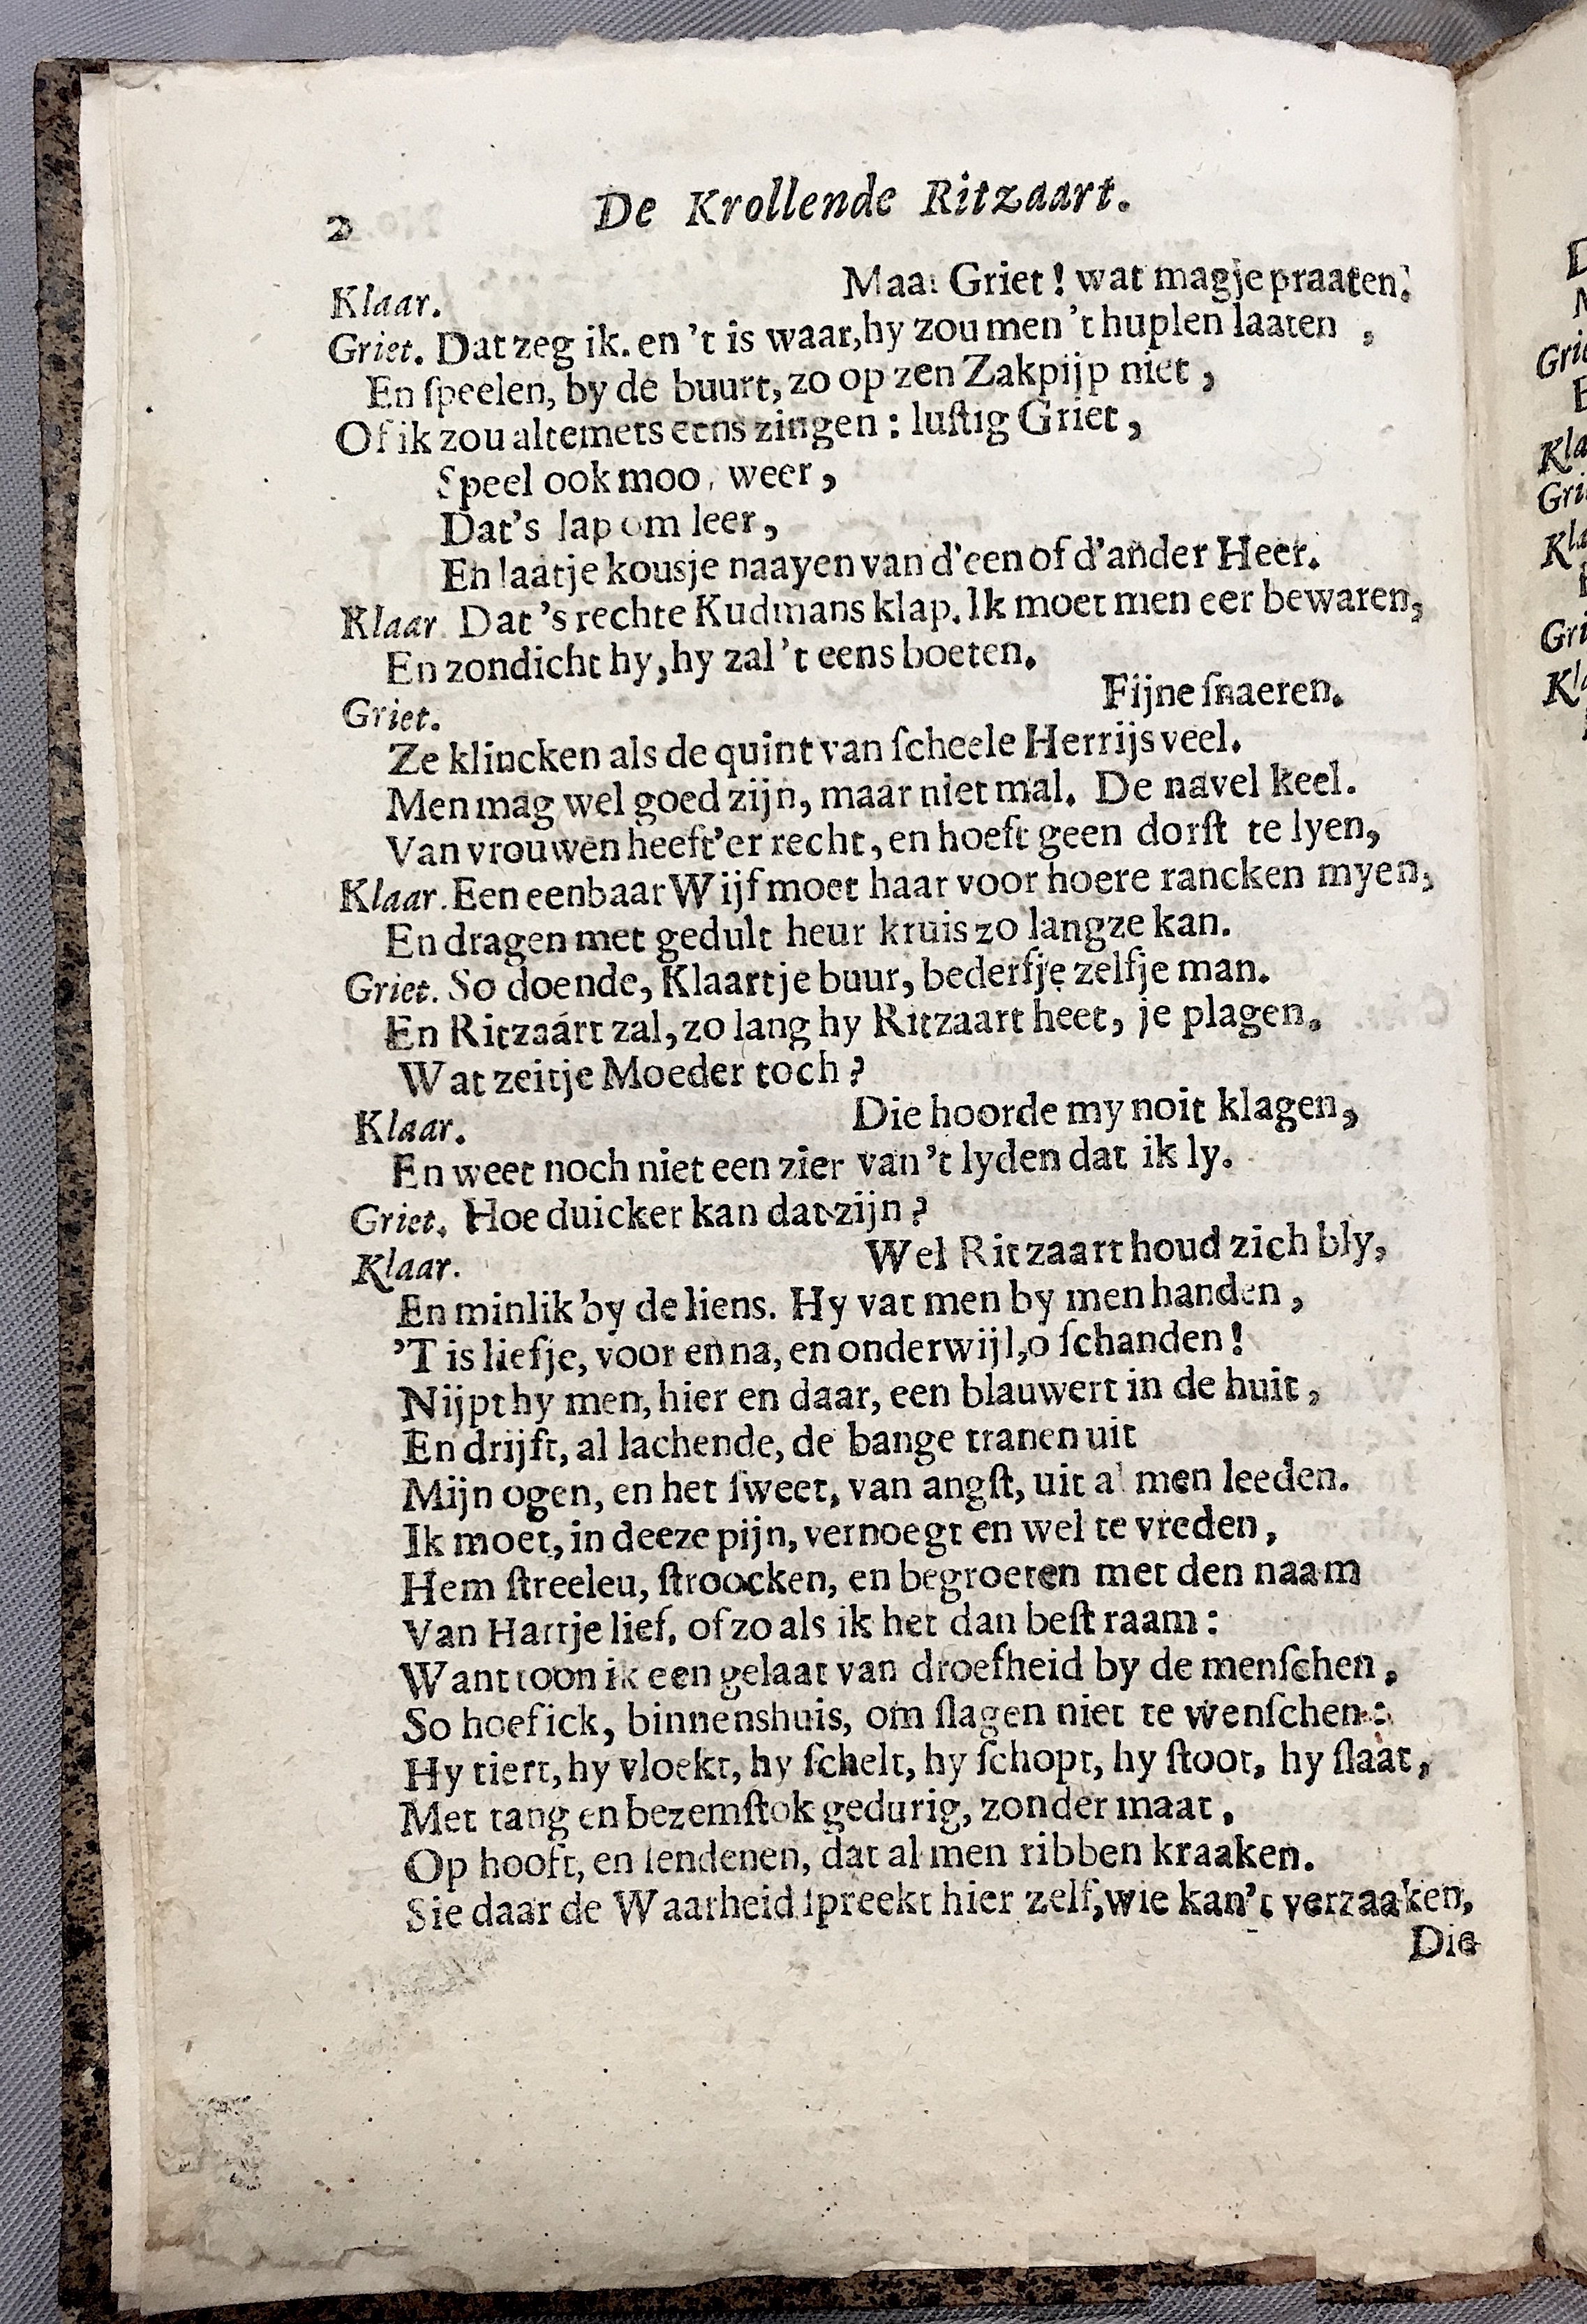 2 De Krollende Ritzaart.
Klaar. Maar Griet! wat magje praaten.
Griet. Dat zeg ik. en 't is waar, hy zou men 't huplen laaten,
En ſpeelen, by de buurt, zo op zen Zakpijp niet,
Of ik zou altemets eens zingen: luſtig Griet,
Speel ook moo, weer,
Dat's lap om leer,
En laatje kousje naayen van d'een of d'ander Heer.
Klaar. Dat's rechte Kudmans klap. Ik moet men eer bewaren,
En zondicht hy, hy zal 't eens boeten.
Griet. Fijne ſnaeren.
Ze klincken als de quint van ſcheele Herrijs veel.
Men mag wel goed zijn, maar niet mal. De navel keel.
Van vrouwen heeft'er recht, en hoeft geen dorſt te lyen,
Klaar. Een eenbaar Wijf moet haar voor hoere rancken myen,
En dragen met gedult heur kruis zo lang ze kan.
Griet. So doende, Klaartje buur, bederfje zelfje man.
En Ritzaárt zal, zo lang hy Ritzaart heet, je plagen.
Wat zeitje Moeder toch?
Klaar. Die hoorde my noit klagen,
En weet noch niet een zier van 't lyden dat ik ly.
Griet. Hoe duicker kan dat zijn?
Klaar. Wel Ritzaart houd zich bly,
En minlik by de liens. Hy vat men by men handen,
'T is liefje, voor en na, en onderwijl, o ſchanden!
Nijpt hy men, hier en daar, een blauwert in de huit,
En drijft, al lachende, de bange tranen uit
Mijn ogen, en het ſweet, van angſt, uit al men leeden.
Ik moet, in deeze pijn, vernoegt en wel te vreden,
Hem ſtreeleu, ſtroocken, en begroeten met den naam
Van Hartje lief, of zo als ik het dan beſt raam:
Want toon ik een gelaat van droefheid by de menſchen,
So hoef ick, binnenshuis, om ſlagen niet te wenſchen:
Hy tiert, hy vloekt, hy ſchelt, hy ſchopt, hy ſtoot, hy ſlaat,
Met tang en bezemſtok gedurig, zonder maat,
Op hooft, en lendenen, dat al men ribben kraaken.
Sie daar de Waarheid ſpreekt hier zelf, wie kan't verzaaken,
Die